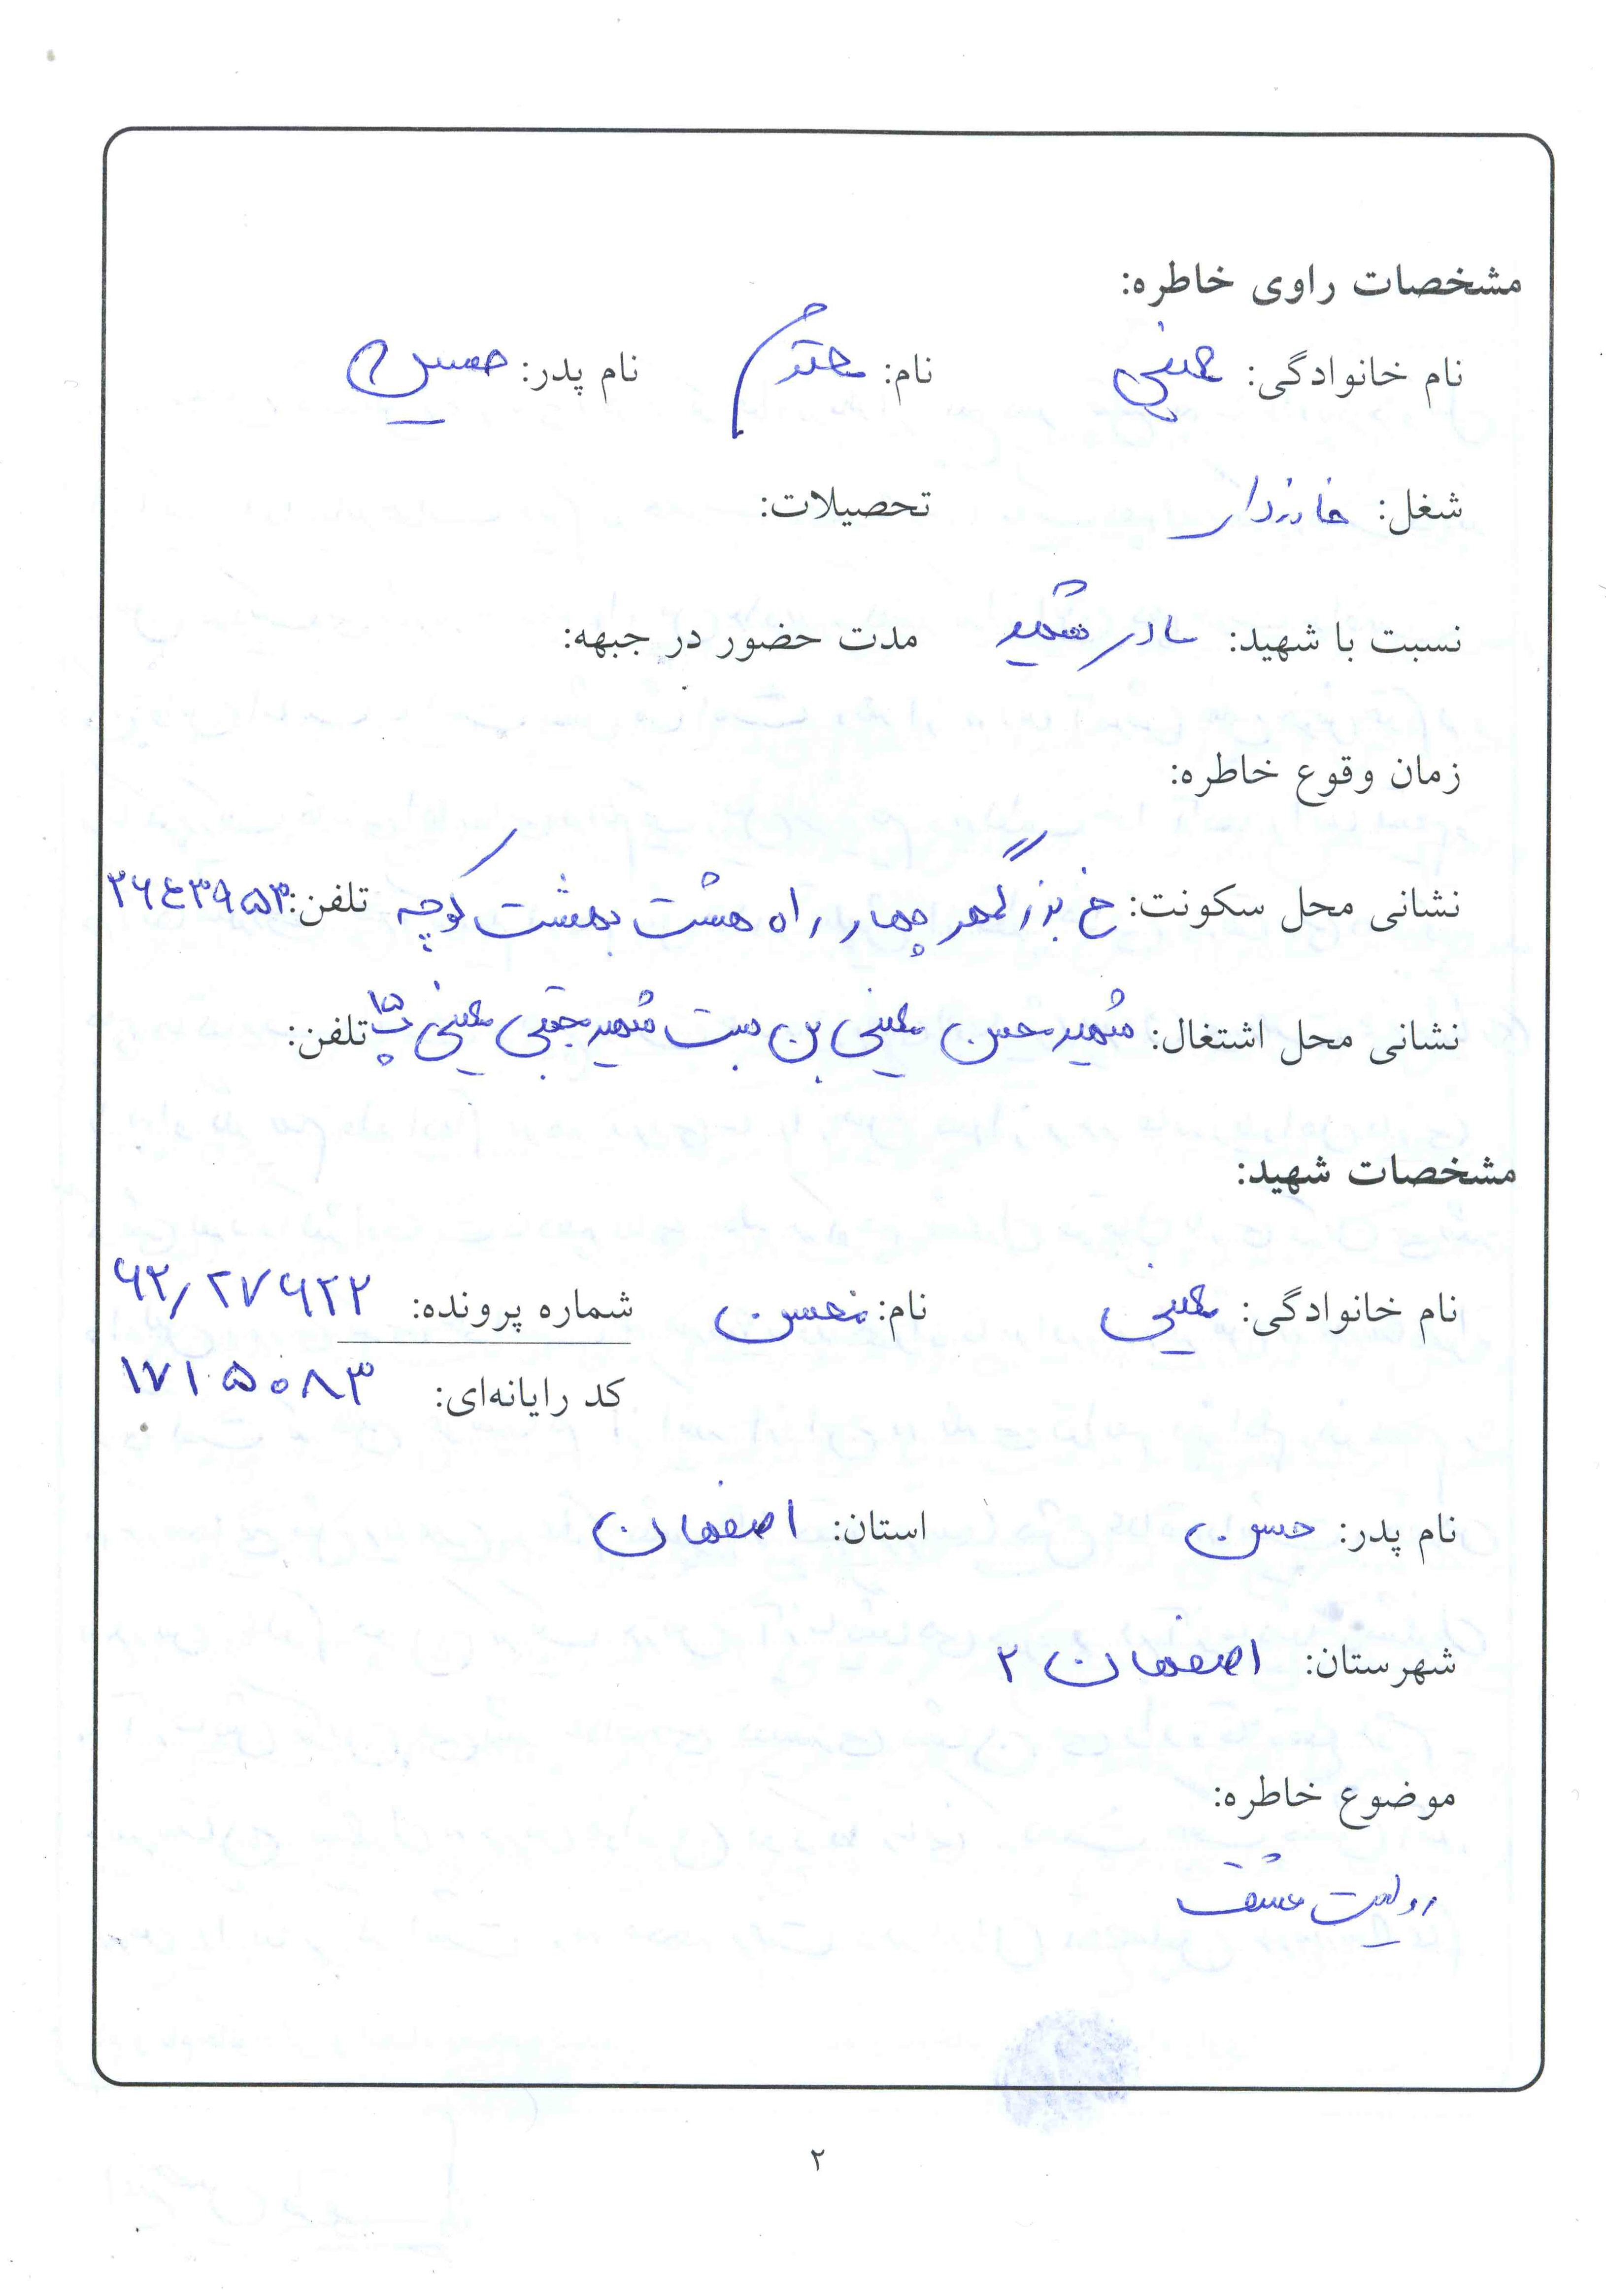 مشخصات راوی خاطره:
نام خانوادگی: معینی نام: محترم نام پدر: حسین
شغل: خانه‌دار تحصیلات:
نسبت با شهید: مادر شهید مدت حضور در جبهه:
زمان وقوع خاطره:
نشانی محل سکونت: خ بزرگمهر چهار راه هشت بهشت کوچه تلفن: ۲۶۴۳۹۵۳
نشانی محل اشتغال: شهید محسن معینی بن بست شهید مجتبی معینی پ ۱۵ تلفن:
مشخصات شهید:
نام خانوادگی: معینی نام: محسن شماره پرونده: ۶۲/۲۷۶۲۲
کد رایانه‌ای: ۱۷۱۵۰۸۳
نام پدر: حسن استان: اصفهان
شهرستان: اصفهان ۲
موضوع خاطره:
روایت عشق
۲